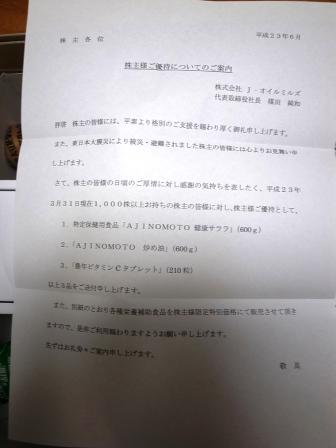 平成23年6月
株主各位
株主様ご優待についてのご案内
株式会社 J-オイルミルズ
代表取締役社長 楳田 純和
拝啓 株主の皆様には、平素より格別のご支援を賜わり厚く御礼申し上げます。
また、東日本大震災により被災・避難されました株主の皆様には心よりお見舞い申
し上げます。
さて、株主の皆様の日頃のご厚情に対し感謝の気持ちを表したく、平成23年
3月31日現在1,000株以上お持ちの株主の皆様に対し、株主様ご優待として、
1．特定保健用食品「AJINOMOTO 健康サララ」(600g)
2．「AJINOMOTO 炒め油」(600g)
3．「豊年ビタミンCタブレット」(210粒)
以上3品をご送付申し上げます。
また、別紙のとおり各種栄養補助食品を株主様限定特別価格にて販売させて頂き
ますので、是非ご利用賜わりますようお願い申し上げます。
先ずはお礼旁々ご案内申し上げます。
敬具